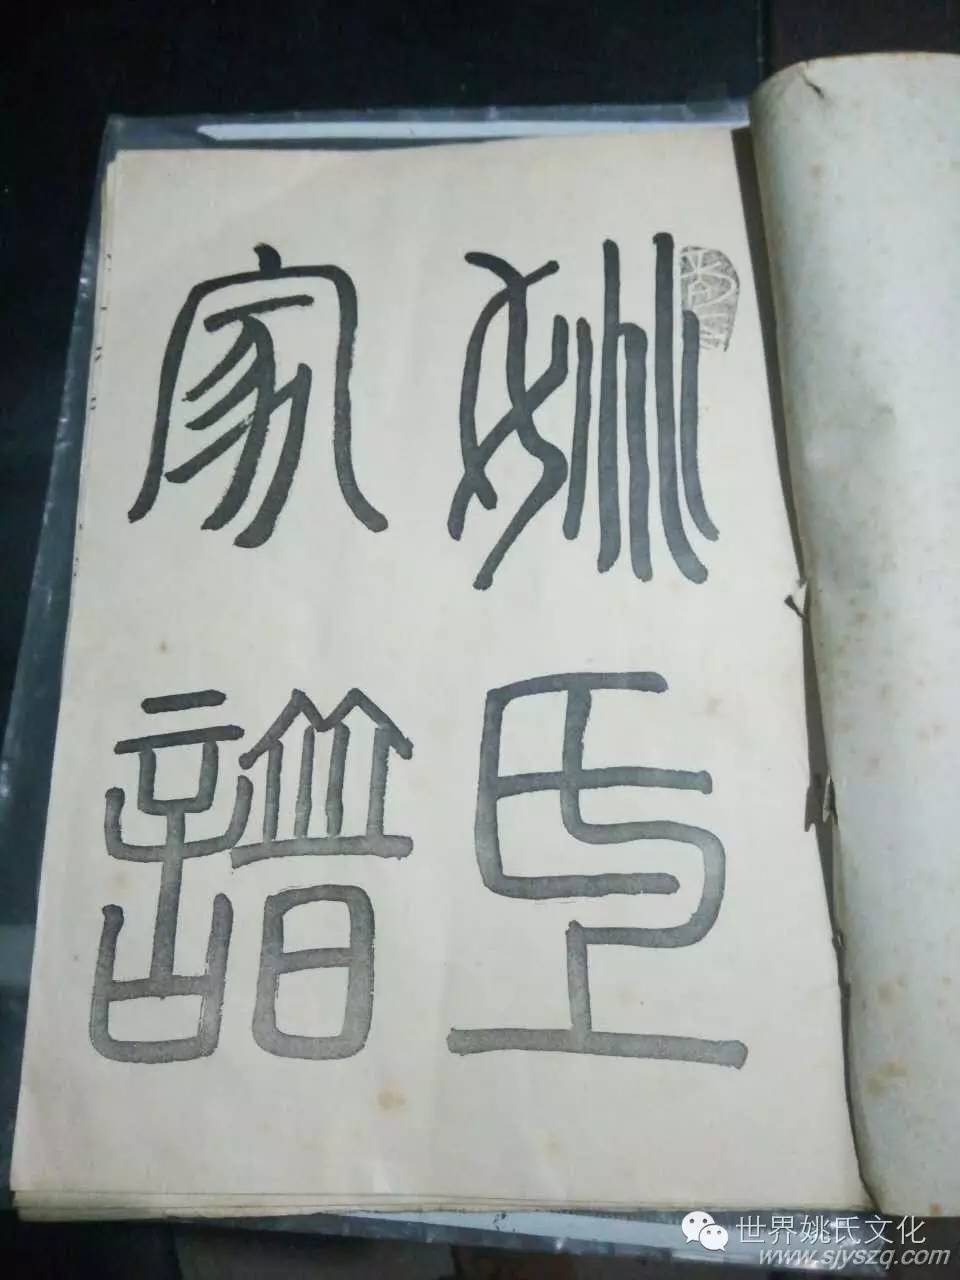 姚氏
家譜
世界姚氏文化
www.sjyszq.com